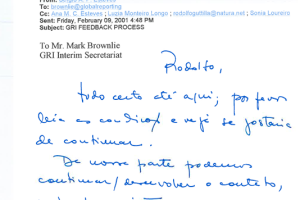 To: brownlie@globalreporting
Cc: Ana M. C. Esteves; Luzia Monteiro Longo; rodolfoguttilla@natura.net; Sonia Loureiro
Sent: Friday, February 09, 2001 4:48 PM
Subject: GRI FEEDBACK PROCESS
To Mr. Mark Brownlie
GRI Interim Secretariat
Rodolfo,
tudo certo até aqui; por favor
leia as e veja se gostaria
de continuar.
De nossa parte podemos
continuar/desenvolver o contato,